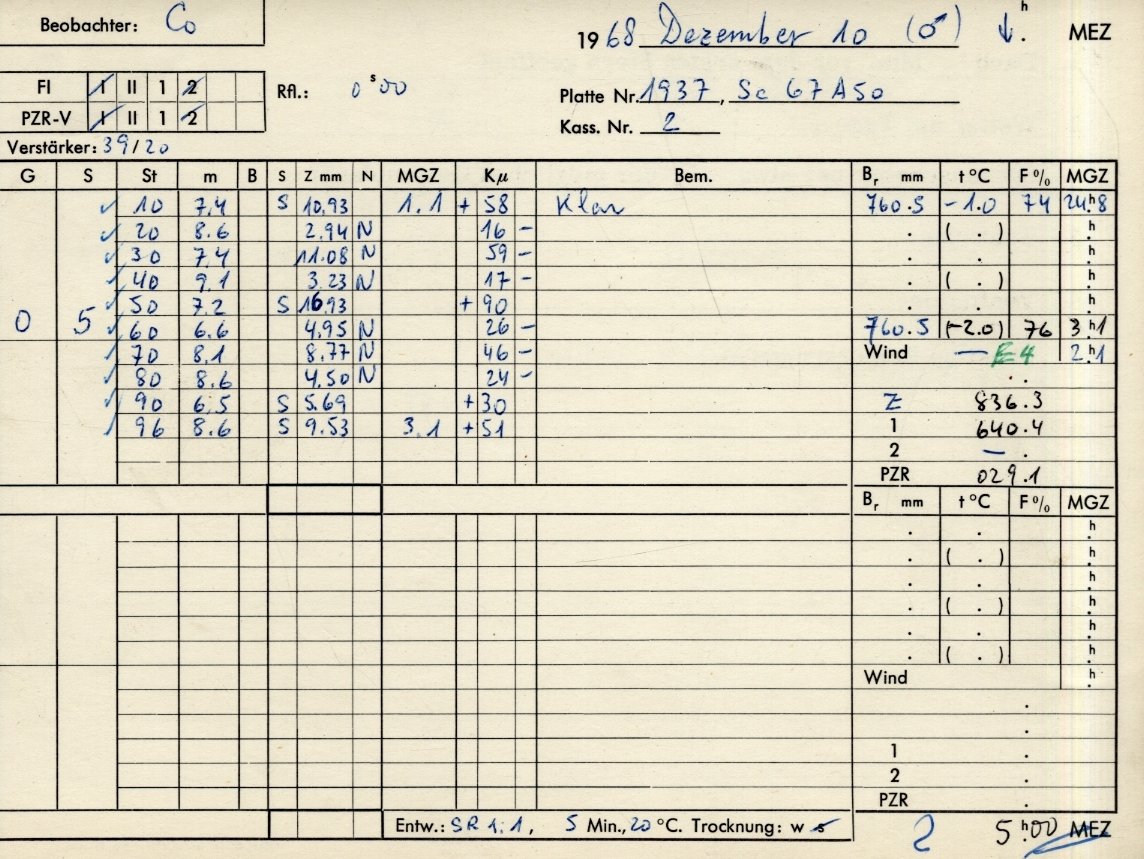 Beobachter: Co
1968 Dezember 10 (♂) ↓ . h MEZ
FI I II 1 2
PZR-V I II 1 2
Rfl.: 0 s 00
Platte Nr. 1937, Sc 67 A 50
Kass. Nr. 2
Verstärker: 39/20
G S St m B S Z mm N MGZ Kμ Bem. Br mm t °C F% MGZ
✓ 10 7.4 S 10.93 1.1 + 58 Klar 760.5 -1.0 74 24.h8
✓ 20 8.6 2.94 N 16 - . ( . ) h.
✓ 30 7.4 11.08 N 59 - . . h.
✓ 40 9.1 3.23 N 17 - . ( . ) h.
✓ 50 7.2 S 16.93 + 90 . . h.
0 5 ✓ 60 6.6 4.95 N 26 - 760.5 (-2.0) 76 3.h1
✓ 70 8.1 8.77 N 46 - Wind — E 4 2.h1
✓ 80 8.6 4.50 N 24 - . .
✓ 90 6.5 S 5.69 + 30 Z 836.3
✓ 96 8.6 S 9.53 3.1 + 51 1 640.4
2 — .
PZR 029.1
Br mm t °C F% MGZ
. . h.
. ( . ) h.
. . h.
. ( . ) h.
. . h.
. ( . ) h.
Wind h.
.
.
1 .
2 .
PZR .
Entw.: SR 1:1, 5 Min., 20 °C. Trocknung: w s 2 5.h00 MEZ